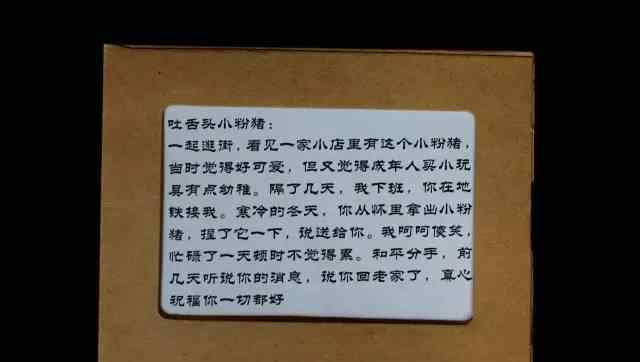 吐舌头小粉猪：
一起逛街，看见一家小店里有这个小粉猪，
当时觉得好可爱，但又觉得成年人买小玩
具有点幼稚。隔了几天，我下班，你在地
铁接我。寒冷的冬天，你从怀里拿出小粉
猪，捏了它一下，说送给你。我呵呵傻笑，
忙碌了一天顿时不觉得累。和平分手，前
几天听说你的消息，说你回老家了，真心
祝福你一切都好